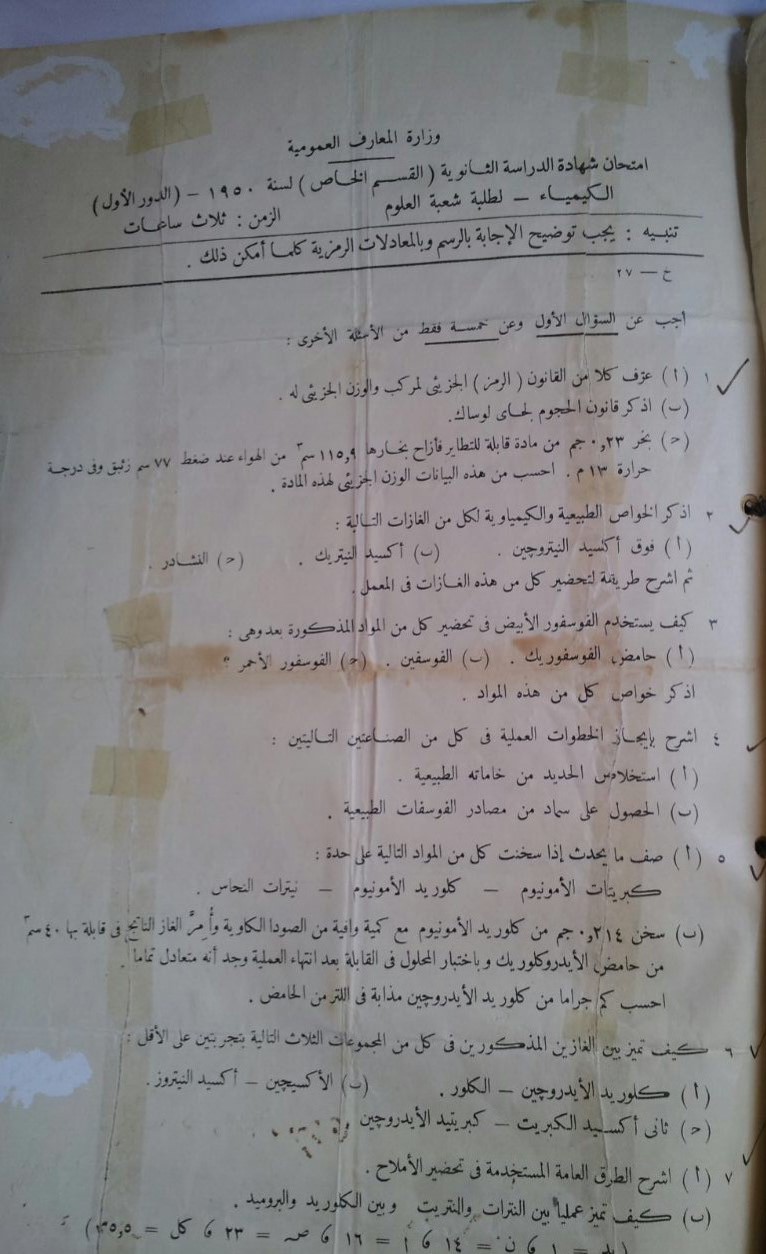 وزارة المعارف العمومية
امتحان شهادة الدراسة الثانوية (القسم الخاص) لسنة ١٩٥٠ – (الدور الأول)
الكيمياء – لطلبة شعبة العلوم الزمن : ثلاث ساعات
تنبيه : يجب توضيح الإجابة بالرسم وبالمعادلات الرمزية كلما أمكن ذلك .
خ — ٢٧
أجب عن السؤال الأول وعن خمسة فقط من الأسئلة الأخرى :
١ (أ) عرّف كلا من القانون (الرمز) الجزيئى لمركب والوزن الجزيئى له .
(ب) اذكر قانون الحجوم لجاى لوساك.
(ح) بخر ٠,٢٣ جم من مادة قابلة للتطاير فأزاح بخارها ١١٥,٩ سم٣ من الهواء عند ضغط ٧٧ سم زئبق وفى درجة
حرارة ١٣ م . احسب من هذه البيانات الوزن الجزيئى لهذه المادة .
٢ اذكر الخواص الطبيعية والكيمياوية لكل من الغازات التالية :
(أ) فوق أكسيد النيتروچين . (ب) أكسيد النيتريك . (ح) النشادر .
ثم اشرح طريقة لتحضير كل من هذه الغازات فى المعمل .
٣ كيف يستخدم الفوسفور الأبيض فى تحضير كل من المواد المذكورة بعد وهى :
(أ) حامض الفوسفوريك . (ب) الفوسفين . (ح) الفوسفور الأحمر ؟
اذكر خواص كل من هذه المواد .
٤ اشرح بإيجاز الخطوات العملية فى كل من الصناعتين التاليتين :
(أ) استخلاص الحديد من خاماته الطبيعية .
(ب) الحصول على سماد من مصادر الفوسفات الطبيعية .
٥ (أ) صف ما يحدث إذا سخنت كل من المواد التالية على حدة :
كبريتات الأمونيوم – كلوريد الأمونيوم – نيترات النحاس .
(ب) سخن ٠,٢١٤ جم من كلوريد الأمونيوم مع كمية وافية من الصودا الكاوية وأُمِرَّ الغاز الناتج فى قابلة بها ٤٠ سم٣
من حامض الأيدروكلوريك وباختبار المحلول فى القابلة بعد انتهاء العملية وجد أنه متعادل تماما .
احسب كم جراما من كلوريد الأيدروچين مذابة فى اللتر من الحامض .
٦ كيف تميز بين الغازين المذكورين فى كل من المجموعات الثلاث التالية بتجربتين على الأقل :
(أ) كلوريد الأيدروچين – الكلور . (ب) الأكسيچين – أكسيد النيتروز .
(ح) ثانى أكسيد الكبريت – كبريتيد الأيدروچين
٧ (أ) اشرح الطرق العامة المستخدمة فى تحضير الأملاح .
(ب) كيف تميز عمليا بين النترات والنتريت وبين الكلوريد والبروميد .
(يد = ١ ، ن = ١٤ ، أ = ١٦ ، ص = ٢٣ ، كل = ٣٥,٥)